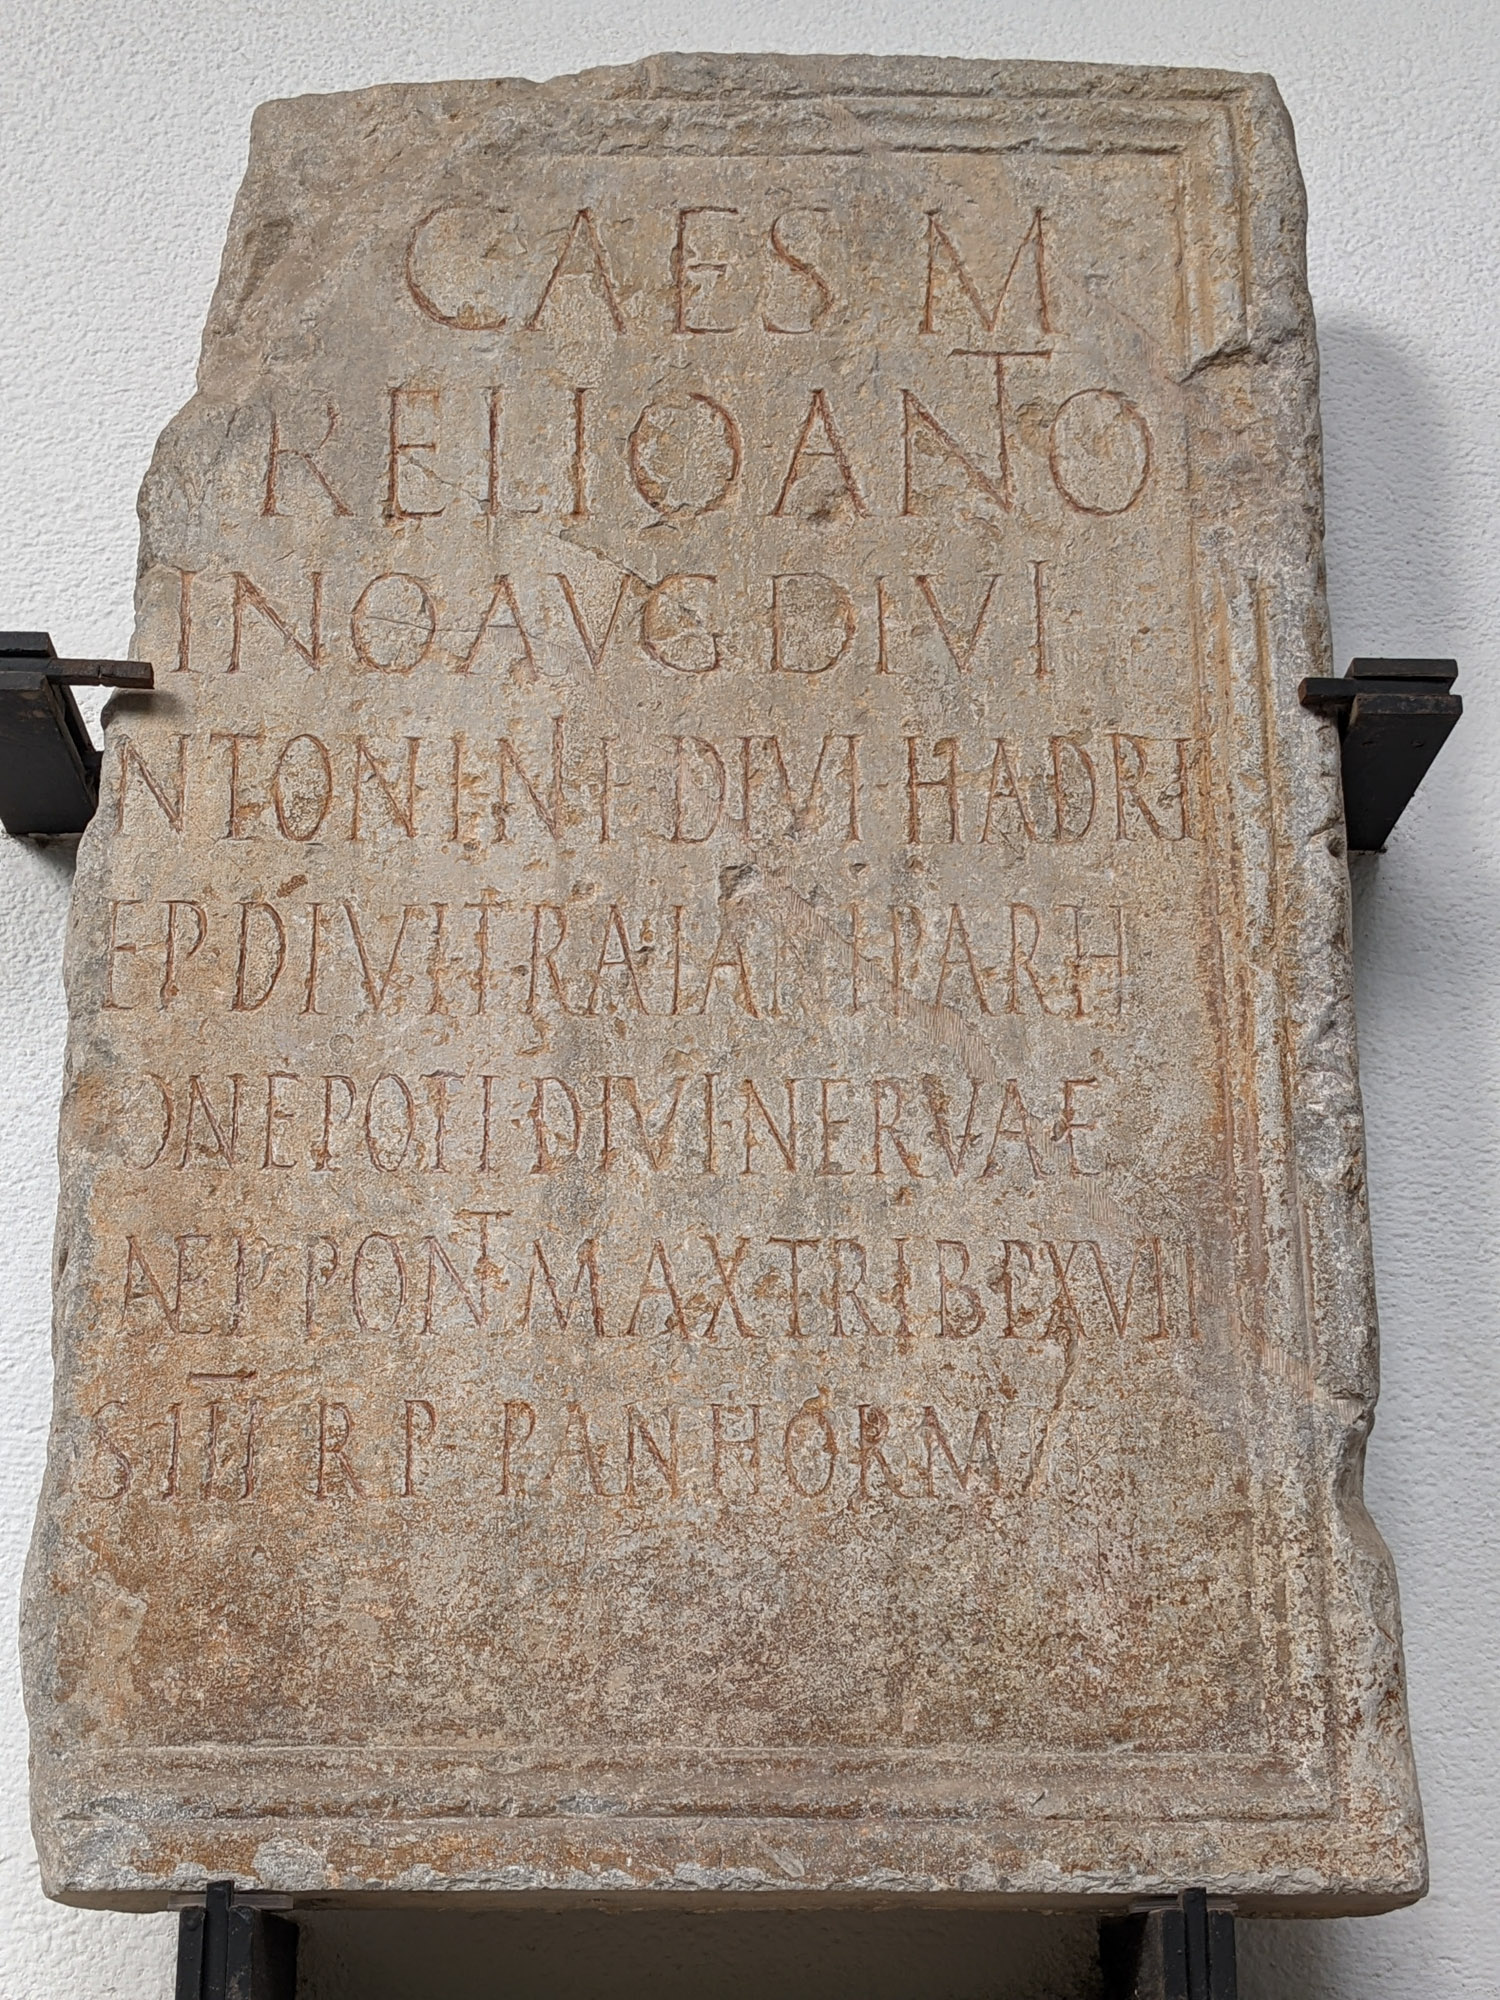 CAES M
RELIO ANTO
INO AVG DIVI
NTONINI DIVI HADRI
EP·DIVI TRAIANI PARH
ONEPOTI DIVI NERVAE
AEP PONT MAX TRIB P XVII
S III R P PANHORM